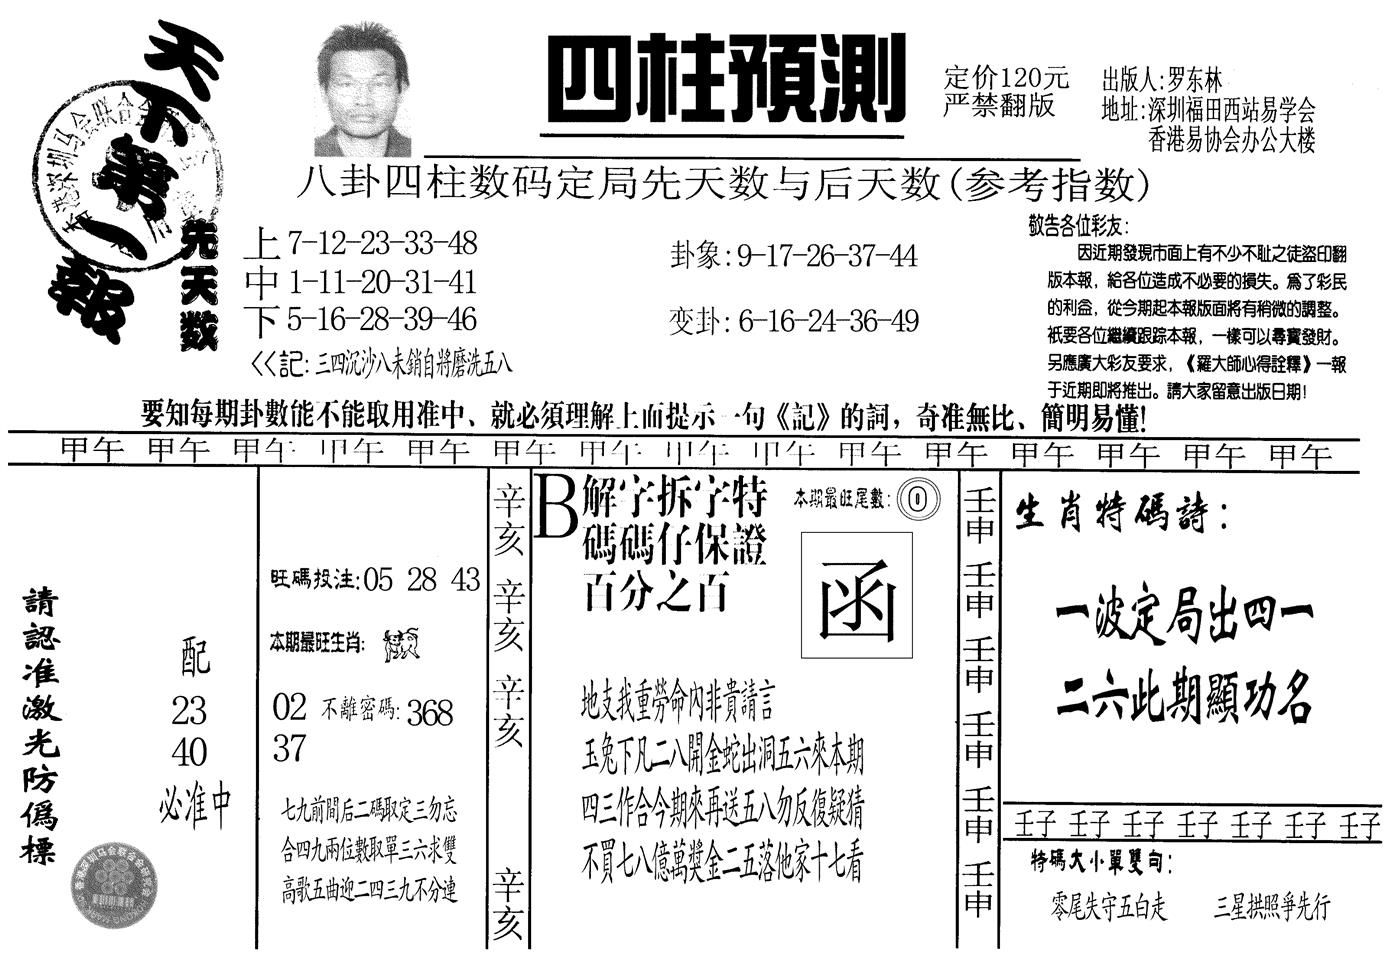 天下第一報
四柱預測
定价120元
严禁翻版
出版人:罗东林
地址:深圳福田西站易学会
香港易协会办公大楼
八卦四柱数码定局先天数与后天数(参考指数)
先天数
上 7-12-23-33-48
中 1-11-20-31-41
下 5-16-28-39-46
卦象:9-17-26-37-44
变卦:6-16-24-36-49
<<記:三四沉沙八未銷自將磨洗五八
敬告各位彩友:
因近期發現市面上有不少不耻之徒盜印翻
版本報，給各位造成不必要的損失。爲了彩民
的利益，從今期起本報版面將有稍微的調整。
衹要各位繼續跟踪本報，一樣可以尋寶發財。
另應廣大彩友要求，《羅大師心得詮釋》一報
于近期即將推出。請大家留意出版日期!
要知每期卦數能不能取用准中、就必須理解上面提示一句《記》的詞，奇准無比、簡明易懂!
甲午 甲午 甲午 甲午 甲午 甲午 甲午 甲午 甲午 甲午 甲午 甲午 甲午 甲午 甲午
請認准激光防僞標
配
23
40
必准中
旺碼投注:05 28 43
本期最旺生肖:
02 不離密碼:368
37
七九前間后二碼取定三勿忘
合四九兩位數取單三六求雙
高歌五曲迎二四三九不分連
辛亥 辛亥 辛亥 辛亥
B
解字拆字特
碼碼仔保證
百分之百
本期最旺尾數:0
函
地支我重勞命內非貴請言
玉兔下凡二八開金蛇出洞五六來本期
四三作合今期來再送五八勿反復疑猜
不買七八億萬獎金二五落他家十七看
壬申 壬申 壬申 壬申 壬申 壬申
生肖特碼詩:
一波定局出四一
二六此期顯功名
壬子 壬子 壬子 壬子 壬子 壬子 壬子
特碼大小單雙句:
零尾失守五白走 三星拱照爭先行